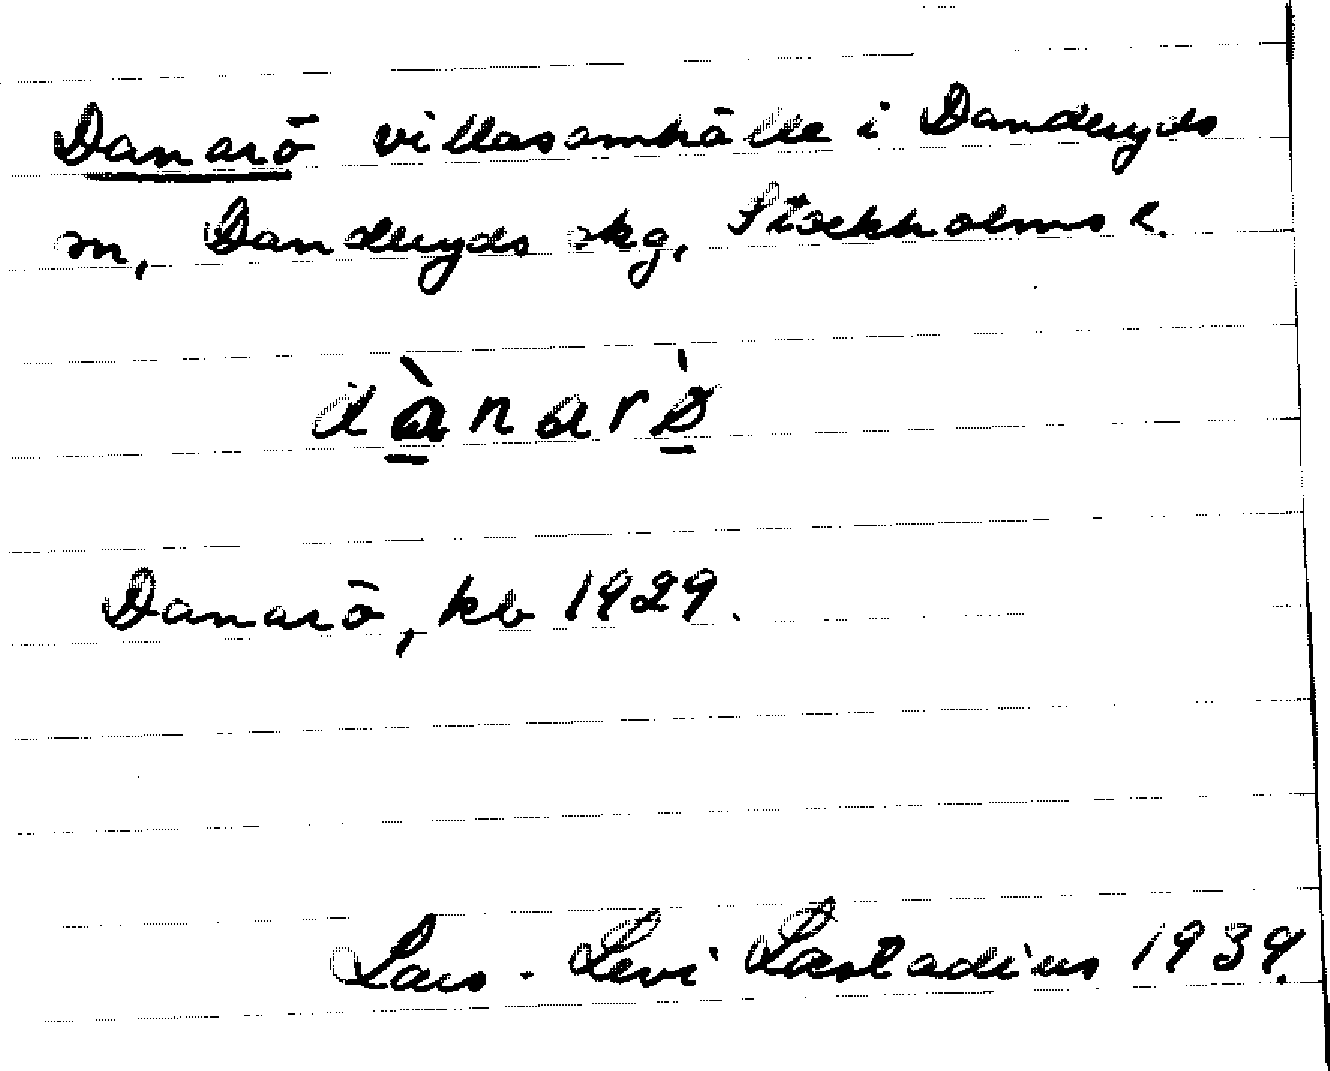 Danarö villasamhälle i Danderyds
sn, Danderyds skg, Stockholms l.
dànarö̀
Danarö, kb 1929.
Lars-Levi Læstadius 1939.